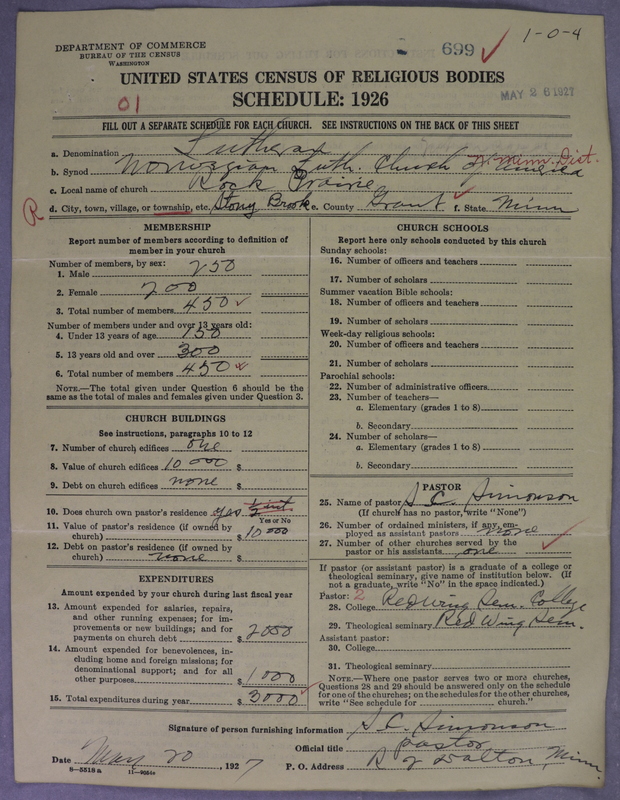 1-0-4
DEPARTMENT OF COMMERCE
BUREAU OF THE CENSUS
WASHINGTON
699
UNITED STATES CENSUS OF RELIGIOUS BODIES
SCHEDULE: 1926
01
MAY 26 1927
FILL OUT A SEPARATE SCHEDULE FOR EACH CHURCH. SEE INSTRUCTIONS ON THE BACK OF THIS SHEET
a. Denomination Lutheran
b. Synod Norwegian Luth. Church of America Minn. Dist.
c. Local name of church Rock Prairie
R d. City, town, village, or township, etc. Stony Brook e. County Grant f. State Minn
MEMBERSHIP
Report number of members according to definition of member in your church
Number of members, by sex:
1. Male 250
2. Female 200
3. Total number of members 450
Number of members under and over 13 years old:
4. Under 13 years of age 150
5. 13 years old and over 300
6. Total number of members 450
NOTE.—The total given under Question 6 should be the same as the total of males and females given under Question 3.
CHURCH BUILDINGS
See instructions, paragraphs 10 to 12
7. Number of church edifices one
8. Value of church edifices 10 000 $
9. Debt on church edifices none $
10. Does church own pastor's residence yes.
Yes or No
11. Value of pastor's residence (if owned by church) $ 10 000
12. Debt on pastor's residence (if owned by church) none $
EXPENDITURES
Amount expended by your church during last fiscal year
13. Amount expended for salaries, repairs, and other running expenses; for improvements or new buildings; and for payments on church debt $ 2000
14. Amount expended for benevolences, including home and foreign missions; for denominational support; and for all other purposes $ 1000
15. Total expenditures during year $ 3000
CHURCH SCHOOLS
Report here only schools conducted by this church
Sunday schools:
16. Number of officers and teachers
17. Number of scholars
Summer vacation Bible schools:
18. Number of officers and teachers
19. Number of scholars
Week-day religious schools:
20. Number of officers and teachers
21. Number of scholars
Parochial schools:
22. Number of administrative officers
23. Number of teachers—
a. Elementary (grades 1 to 8)
b. Secondary
24. Number of scholars—
a. Elementary (grades 1 to 8)
b. Secondary
PASTOR
25. Name of pastor S. C. Simonson
(If church has no pastor, write "None")
26. Number of ordained ministers, if any, employed as assistant pastors none
27. Number of other churches served by the pastor or his assistants one
If pastor (or assistant pastor) is a graduate of a college or theological seminary, give name of institution below. (If not a graduate, write "No" in the space indicated.)
Pastor: 2
28. College Red Wing Sem. College
29. Theological seminary Red Wing Sem.
Assistant pastor:
30. College
31. Theological seminary
NOTE.—Where one pastor serves two or more churches, Questions 28 and 29 should be answered only on the schedule for one of the churches; on the schedules for the other churches, write "See schedule for church."
Signature of person furnishing information S. C. Simonson
Official title pastor
Date May 20, 1927 P. O. Address R 2 Dalton, Minn.
8—5518a 11—9364